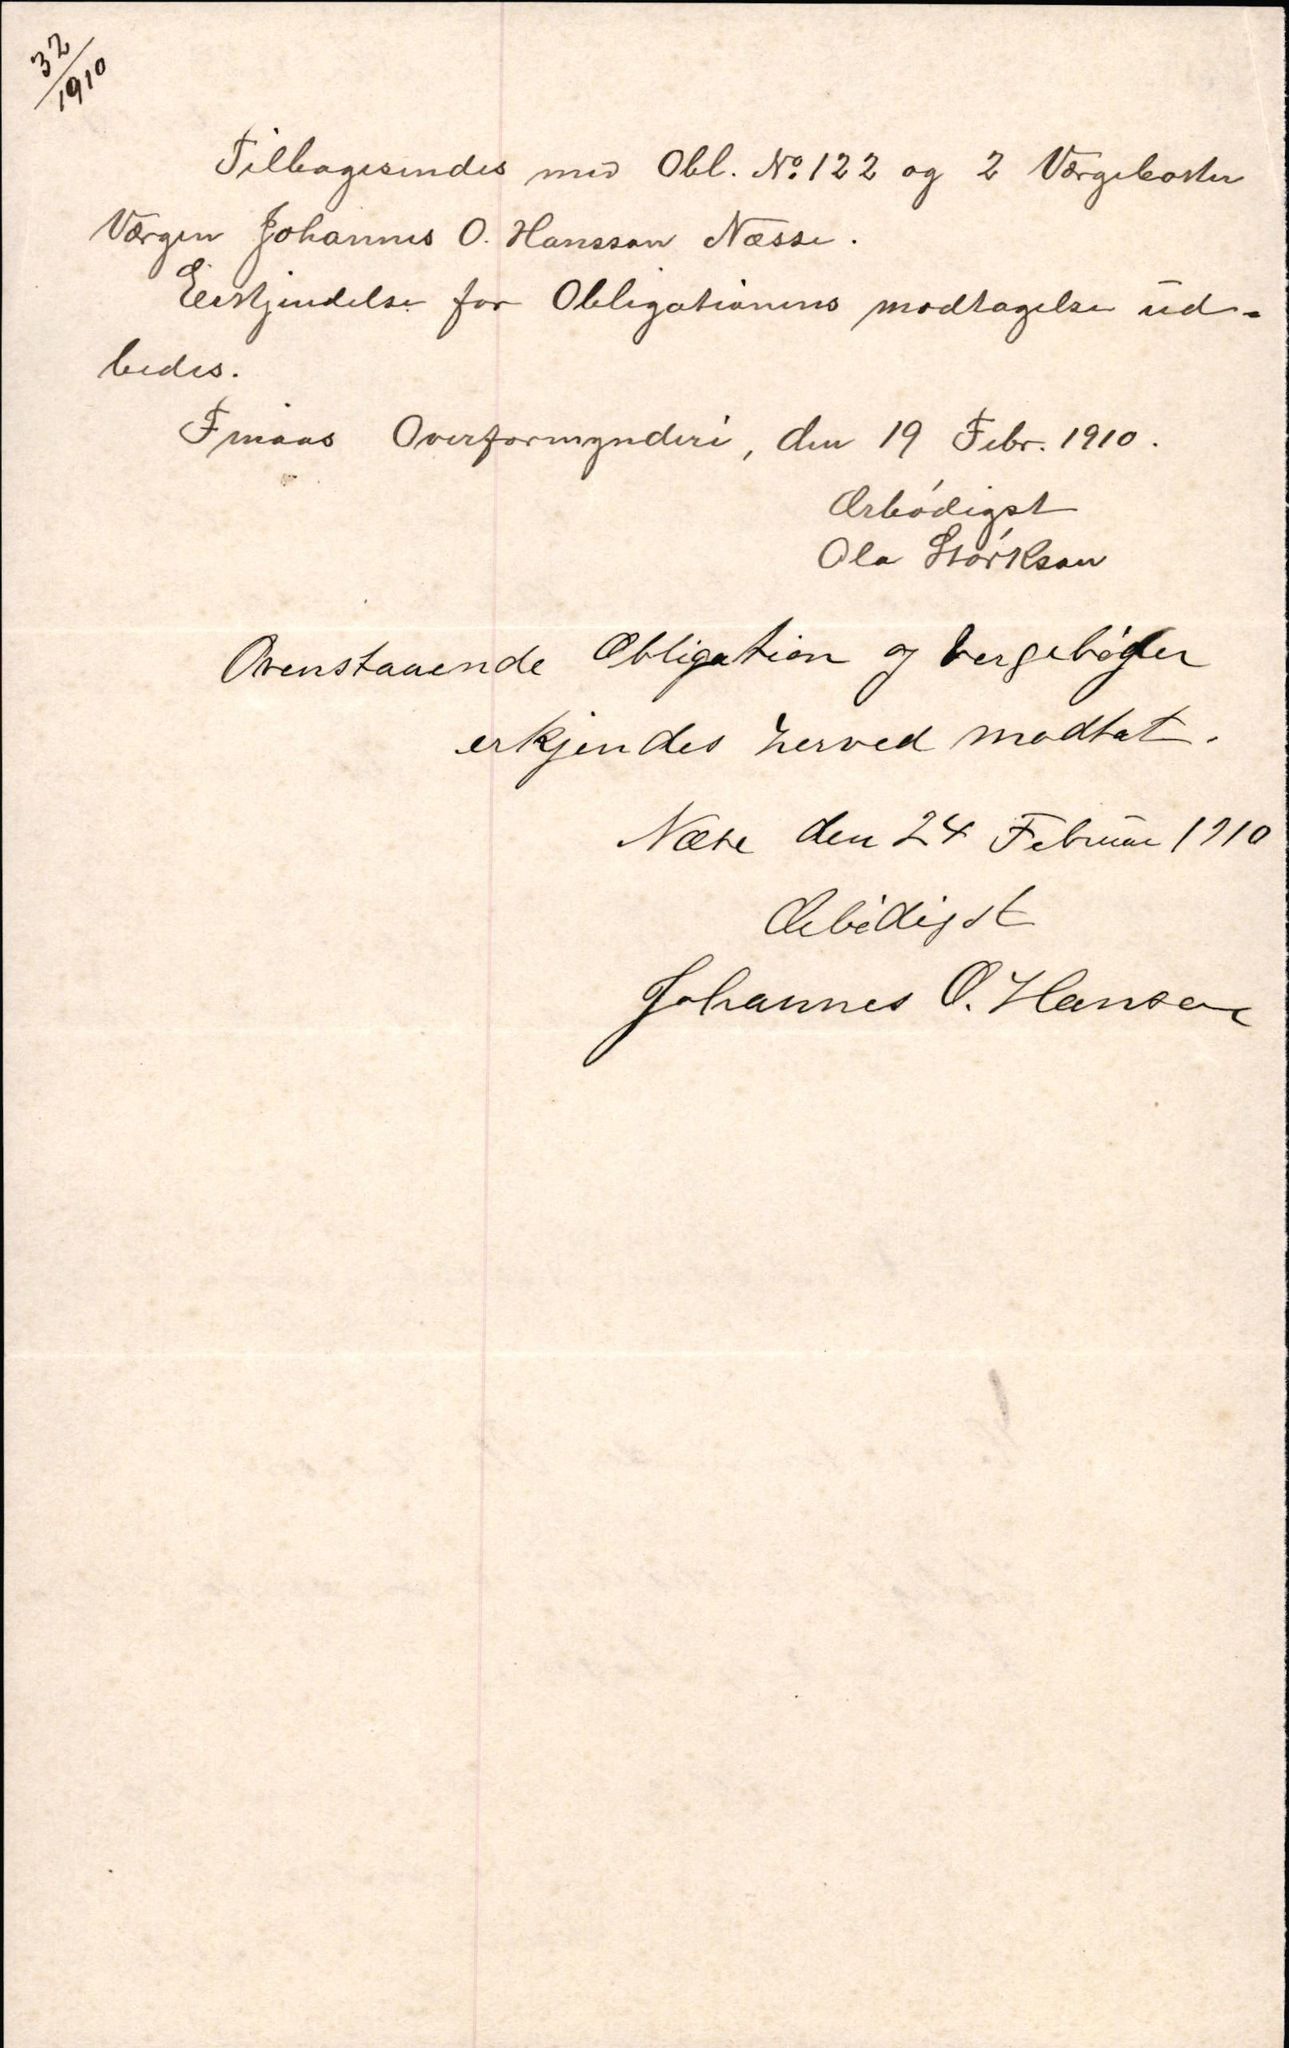 32
1910
Tilbagesendes med Obl. No. 122 og 2 Værgebøker
Værgen Johannes O. Hansson Næsse.
Erkjendelse for Obligationens modtagelse ud-
bedes.
Finaas Overformynderi, den 19 Febr. 1910.
Ærbødigst
Ola Størkson
Ovenstaaende Obligation og vergebøger
erkjendes herved modtat.
Næse den 24 Februar 1910
Ærbødigst
Johannes O. Hansen